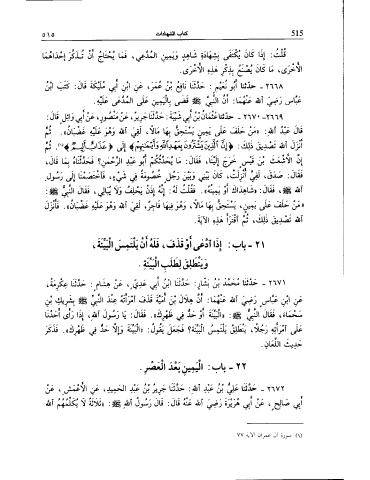 ٥١٥ كتاب الشهادات 515
قُلْتُ: إِذَا كَانَ يُكْتَفَى بِشَهَادَةِ شَاهِدٍ وَيَمِينِ الْمُدَّعِي، فَمَا يُحْتَاجُ أَنْ تُذْكِرَ إِحْدَاهُمَا
الْأُخْرَى، مَا كَانَ يُصْنَعُ بِذِكْرِ هَذِهِ الْأُخْرَى.
٢٦٦٨ - حدثنا أَبُو نُعَيْمٍ: حَدَّثَنَا نَافِعُ بْنُ عُمَرَ، عَنِ ابْنِ أَبِي مُلَيْكَةَ قَالَ: كَتَبَ ابْنُ
عَبَّاسٍ رَضِيَ اللَّهُ عَنْهُمَا: أَنَّ النَّبِيَّ ﷺ قَضَى بِالْيَمِينِ عَلَى الْمُدَّعَى عَلَيْهِ.
٢٦٦٩ - ٢٦٧٠ - حدثنا عُثْمَانُ بْنُ أَبِي شَيْبَةَ: حَدَّثَنَا جَرِيرٌ، عَنْ مَنْصُورٍ، عَنْ أَبِي وَائِلٍ قَالَ:
قَالَ عَبْدُ اللَّهِ: «مَنْ حَلَفَ عَلَى يَمِينٍ يَسْتَحِقُّ بِهَا مَالًا، لَقِيَ اللَّهَ وَهُوَ عَلَيْهِ غَضْبَانُ». ثُمَّ
أَنْزَلَ اللَّهُ تَصْدِيقَ ذَلِكَ: ﴿إِنَّ الَّذِينَ يَشْتَرُونَ بِعَهْدِ اللَّهِ وَأَيْمَانِهِمْ﴾ إِلَى ﴿عَذَابٌ أَلِيمٌ﴾(١). ثُمَّ
إِنَّ الْأَشْعَثَ بْنَ قَيْسٍ خَرَجَ إِلَيْنَا، فَقَالَ: مَا يُحَدِّثُكُمْ أَبُو عَبْدِ الرَّحْمَنِ؟ فَحَدَّثْنَاهُ بِمَا قَالَ،
فَقَالَ: صَدَقَ، لَفِيَّ أُنْزِلَتْ، كَانَ بَيْنِي وَبَيْنَ رَجُلٍ خُصُومَةٌ فِي شَيْءٍ، فَاخْتَصَمْنَا إِلَى رَسُولِ
اللَّهِ ﷺ، فَقَالَ: «شَاهِدَاكَ أَوْ يَمِينُهُ». فَقُلْتُ لَهُ: إِنَّهُ إِذَنْ يَحْلِفُ وَلَا يُبَالِي، فَقَالَ النَّبِيُّ ﷺ:
«مَنْ حَلَفَ عَلَى يَمِينٍ، يَسْتَحِقُّ بِهَا مَالًا، وَهُوَ فِيهَا فَاجِرٌ، لَقِيَ اللَّهَ وَهُوَ عَلَيْهِ غَضْبَانُ». فَأَنْزَلَ
اللَّهُ تَصْدِيقَ ذَلِكَ، ثُمَّ اقْتَرَأَ هَذِهِ الْآيَةَ.
٢١ - باب: إِذَا ادَّعَى أَوْ قَذَفَ، فَلَهُ أَنْ يَلْتَمِسَ الْبَيِّنَةَ،
وَيَنْطَلِقَ لِطَلَبِ الْبَيِّنَةِ
٢٦٧١ - حدّثنا مُحَمَّدُ بْنُ بَشَّارٍ: حَدَّثَنَا ابْنُ أَبِي عَدِيٍّ، عَنْ هِشَامٍ: حَدَّثَنَا عِكْرِمَةُ،
عَنِ ابْنِ عَبَّاسٍ رَضِيَ اللَّهُ عَنْهُمَا: أَنَّ هِلَالَ بْنَ أُمَيَّةَ قَذَفَ امْرَأَتَهُ عِنْدَ النَّبِيِّ ﷺ بِشَرِيكِ بْنِ
سَحْمَاءَ، فَقَالَ النَّبِيُّ ﷺ: «الْبَيِّنَةُ أَوْ حَدٌّ فِي ظَهْرِكَ». فَقَالَ: يَا رَسُولَ اللَّهِ، إِذَا رَأَى أَحَدُنَا
عَلَى امْرَأَتِهِ رَجُلًا، يَنْطَلِقُ يَلْتَمِسُ الْبَيِّنَةَ؟ فَجَعَلَ يَقُولُ: «الْبَيِّنَةَ وَإِلَّا حَدٌّ فِي ظَهْرِكَ». فَذَكَرَ
حَدِيثَ اللِّعَانِ.
٢٢ - باب: الْيَمِينِ بَعْدَ الْعَصْرِ.
٢٦٧٢ - حدثنا عَلِيُّ بْنُ عَبْدِ اللَّهِ: حَدَّثَنَا جَرِيرُ بْنُ عَبْدِ الْحَمِيدِ، عَنِ الْأَعْمَشِ، عَنْ
أَبِي صَالِحٍ، عَنْ أَبِي هُرَيْرَةَ رَضِيَ اللَّهُ عَنْهُ قَالَ: قَالَ رَسُولُ اللَّهِ ﷺ: «ثَلَاثَةٌ لَا يُكَلِّمُهُمُ اللَّهُ
(١) سورة آل عمران الآية ٧٧